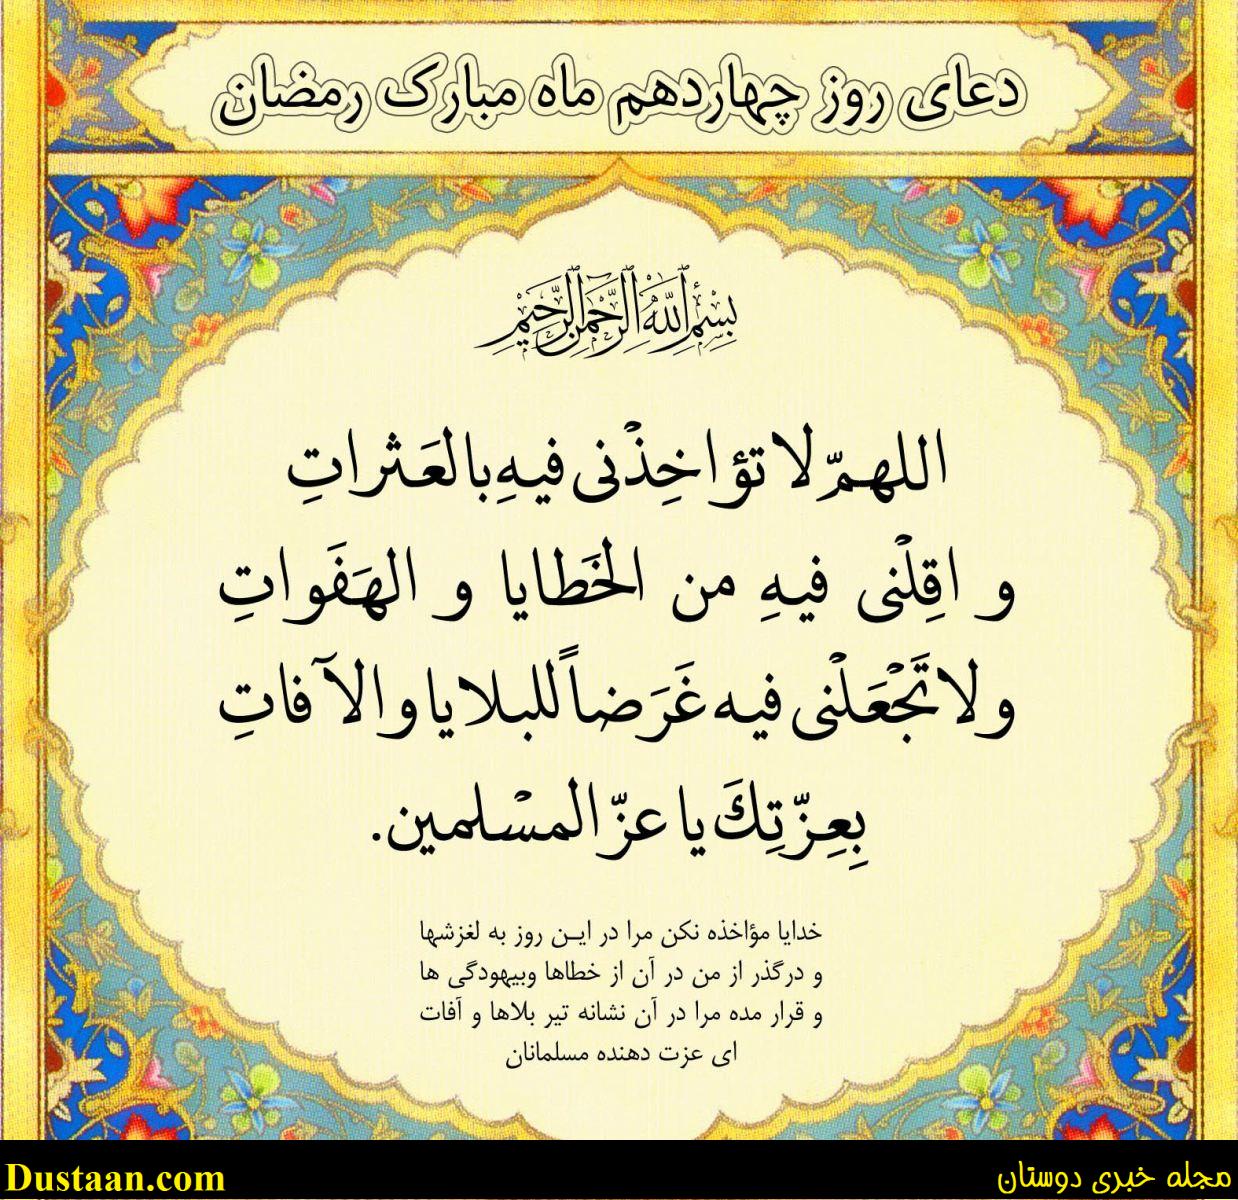 دعای روز چهاردهم ماه مبارک رمضان
بِسْمِ اللَّهِ الرَّحْمنِ الرَّحِيْمِ
اللهمّ لا تؤاخِذْنی فیهِ بالعَثراتِ
و اقِلْنی فیهِ من الخَطایا و الهَفَواتِ
ولا تَجْعَلْنی فیه غَرَضاً للبلایا والآفاتِ
بِعِزّتِكَ یا عزّ المسْلمین.
خدایا مؤاخذه نکن مرا در ایـن روز به لغزشها
و درگذر از من در آن از خطاها وبیهودگی ها
و قرار مده مرا در آن نشانه تیر بلاها و آفات
ای عزت دهنده مسلمانان
Dustaan.com
مجله خبری دوستان